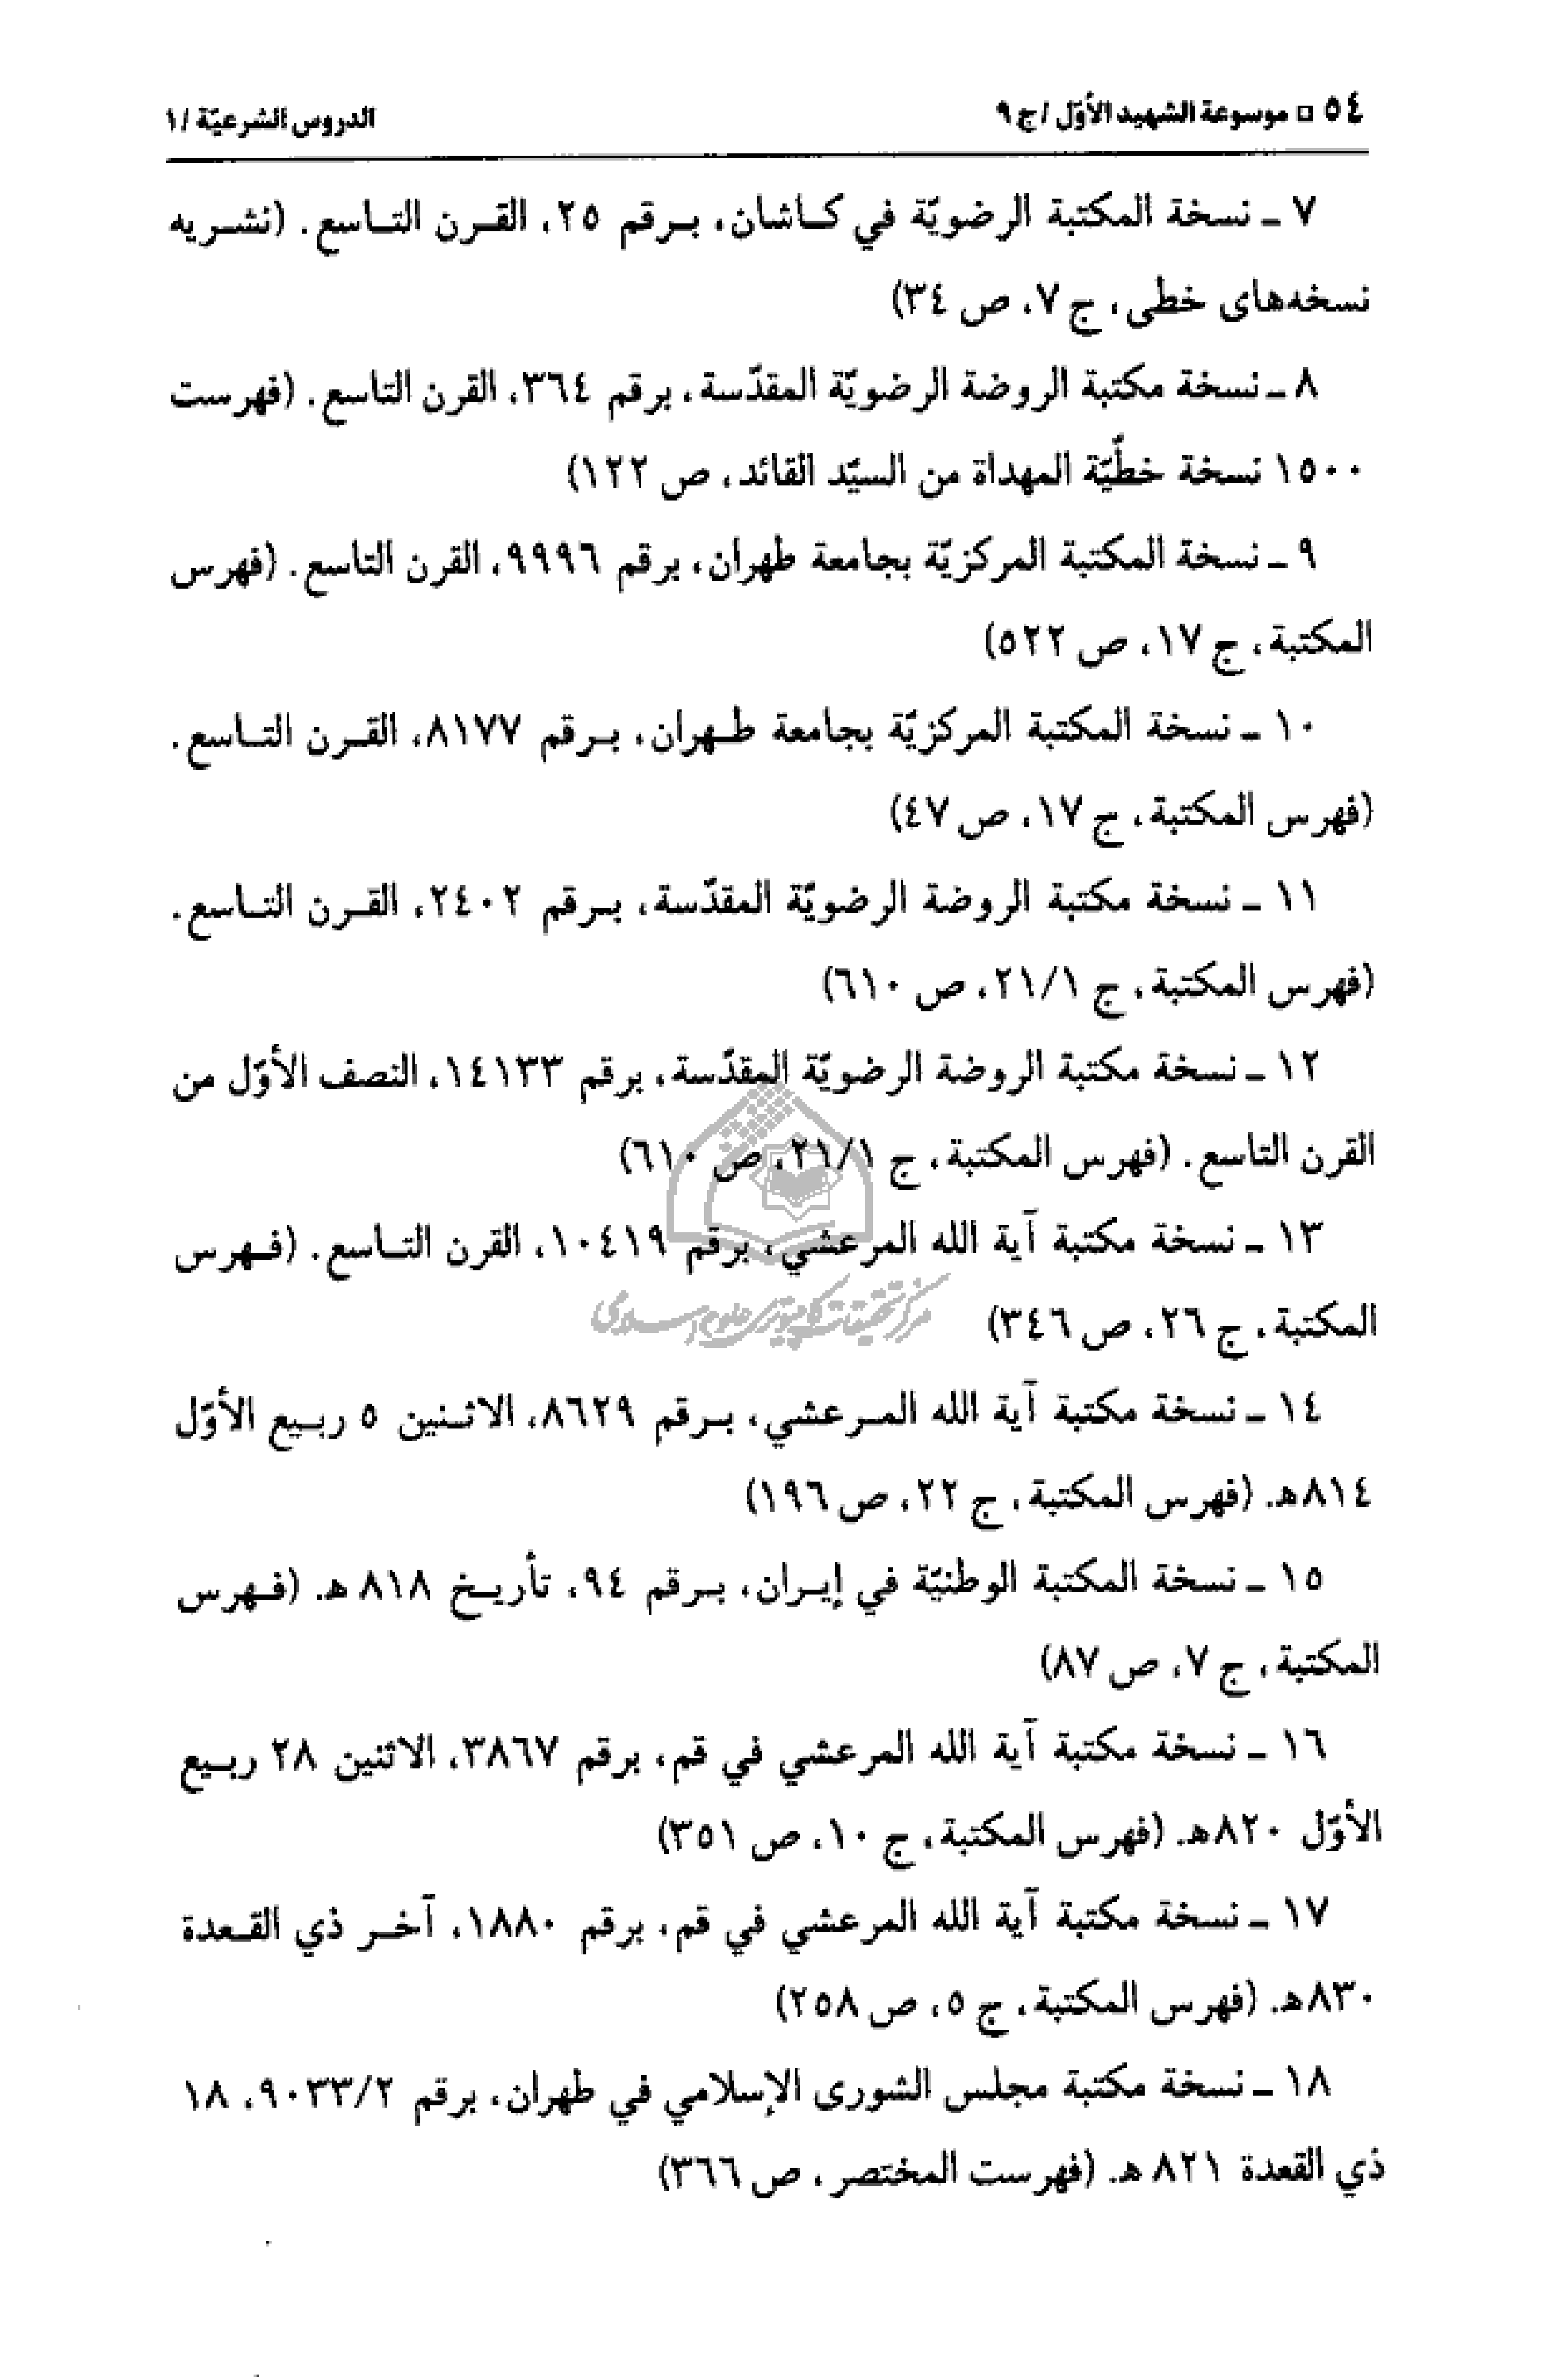 ٥٤ □ موسوعة الشهيد الأوّل / ج ٩ الدروس الشرعيّة / ١
٧ ـ نسخة المكتبة الرضويّة في كاشان، برقم ٢٥، القرن التاسع. (نشريه
نسخه‌های خطی، ج ٧، ص ٣٤)
٨ ـ نسخة مكتبة الروضة الرضويّة المقدّسة، برقم ٣٦٤، القرن التاسع. (فهرست
١٥٠٠ نسخة خطّيّة المهداة من السيّد القائد، ص ١٢٢)
٩ ـ نسخة المكتبة المركزيّة بجامعة طهران، برقم ٩٩٩٦، القرن التاسع. (فهرس
المكتبة، ج ١٧، ص ٥٢٢)
١٠ ـ نسخة المكتبة المركزيّة بجامعة طهران، برقم ٨١٧٧، القرن التاسع.
(فهرس المكتبة، ج ١٧، ص ٤٧)
١١ ـ نسخة مكتبة الروضة الرضويّة المقدّسة، برقم ٢٤٠٢، القرن التاسع.
(فهرس المكتبة، ج ٢١/١، ص ٦١٠)
١٢ ـ نسخة مكتبة الروضة الرضويّة المقدّسة، برقم ١٤١٣٣، النصف الأوّل من
القرن التاسع. (فهرس المكتبة، ج ٢١/١، ص ٦١٠)
١٣ ـ نسخة مكتبة آية الله المرعشي، برقم ١٠٤١٩، القرن التاسع. (فهرس
المكتبة، ج ٢٦، ص ٣٤٦)
مرکز تحقیقات کامپیوتری علوم اسلامی
١٤ ـ نسخة مكتبة آية الله المرعشي، برقم ٨٦٢٩، الاثنين ٥ ربيع الأوّل
٨١٤ه‍. (فهرس المكتبة، ج ٢٢، ص ١٩٦)
١٥ ـ نسخة المكتبة الوطنيّة في إيران، برقم ٩٤، تأريخ ٨١٨ ه‍. (فهرس
المكتبة، ج ٧، ص ٨٧)
١٦ ـ نسخة مكتبة آية الله المرعشي في قم، برقم ٣٨٦٧، الاثنين ٢٨ ربيع
الأوّل ٨٢٠ه‍. (فهرس المكتبة، ج ١٠، ص ٣٥١)
١٧ ـ نسخة مكتبة آية الله المرعشي في قم، برقم ١٨٨٠، آخر ذي القعدة
٨٣٠ه‍. (فهرس المكتبة، ج ٥، ص ٢٥٨)
١٨ ـ نسخة مكتبة مجلس الشورى الإسلامي في طهران، برقم ٩٠٣٣/٢، ١٨
ذي القعدة ٨٢١ ه‍. (فهرست المختصر، ص ٣٦٦)